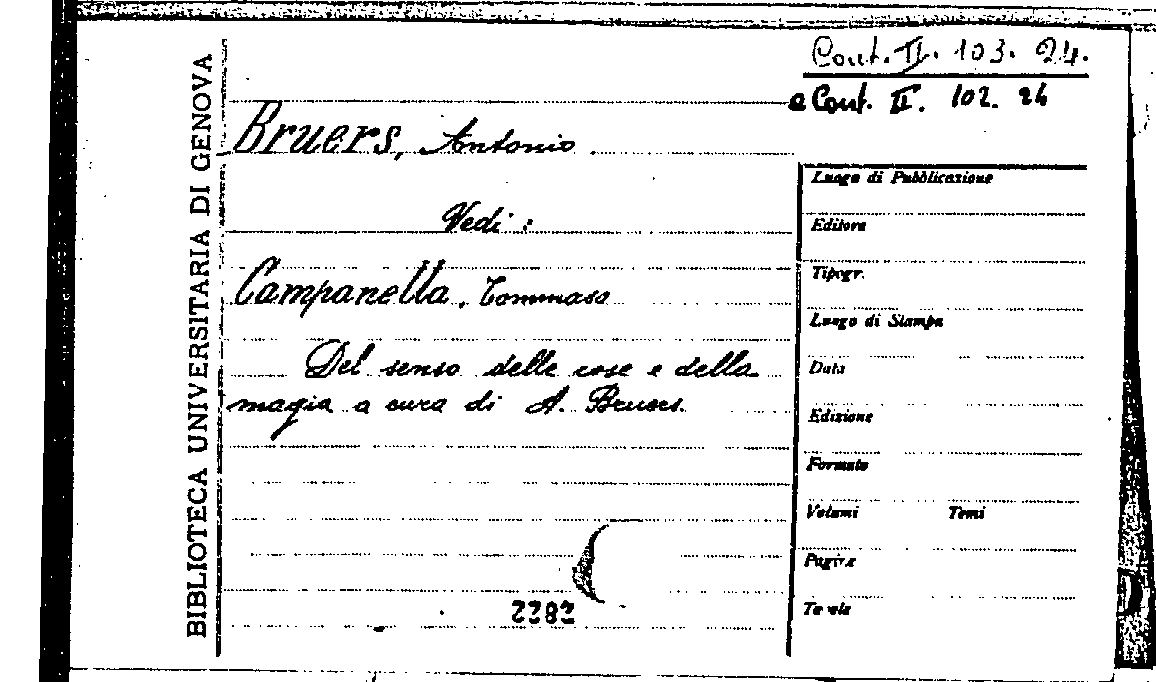 BIBLIOTECA UNIVERSITARIA DI GENOVA
Cont. II. 103. 24.
e Cont. II. 102. 24
Bruers, Antonio
Vedi:
Campanella, Tommaso
Del senso delle cose e della
magia a cura di A. Bruers.
Luogo di Pubblicazione
Editore
Tipogr.
Luogo di Stampa
Data
Edizione
Formato
Volumi Tomi
Pagine
Tavole